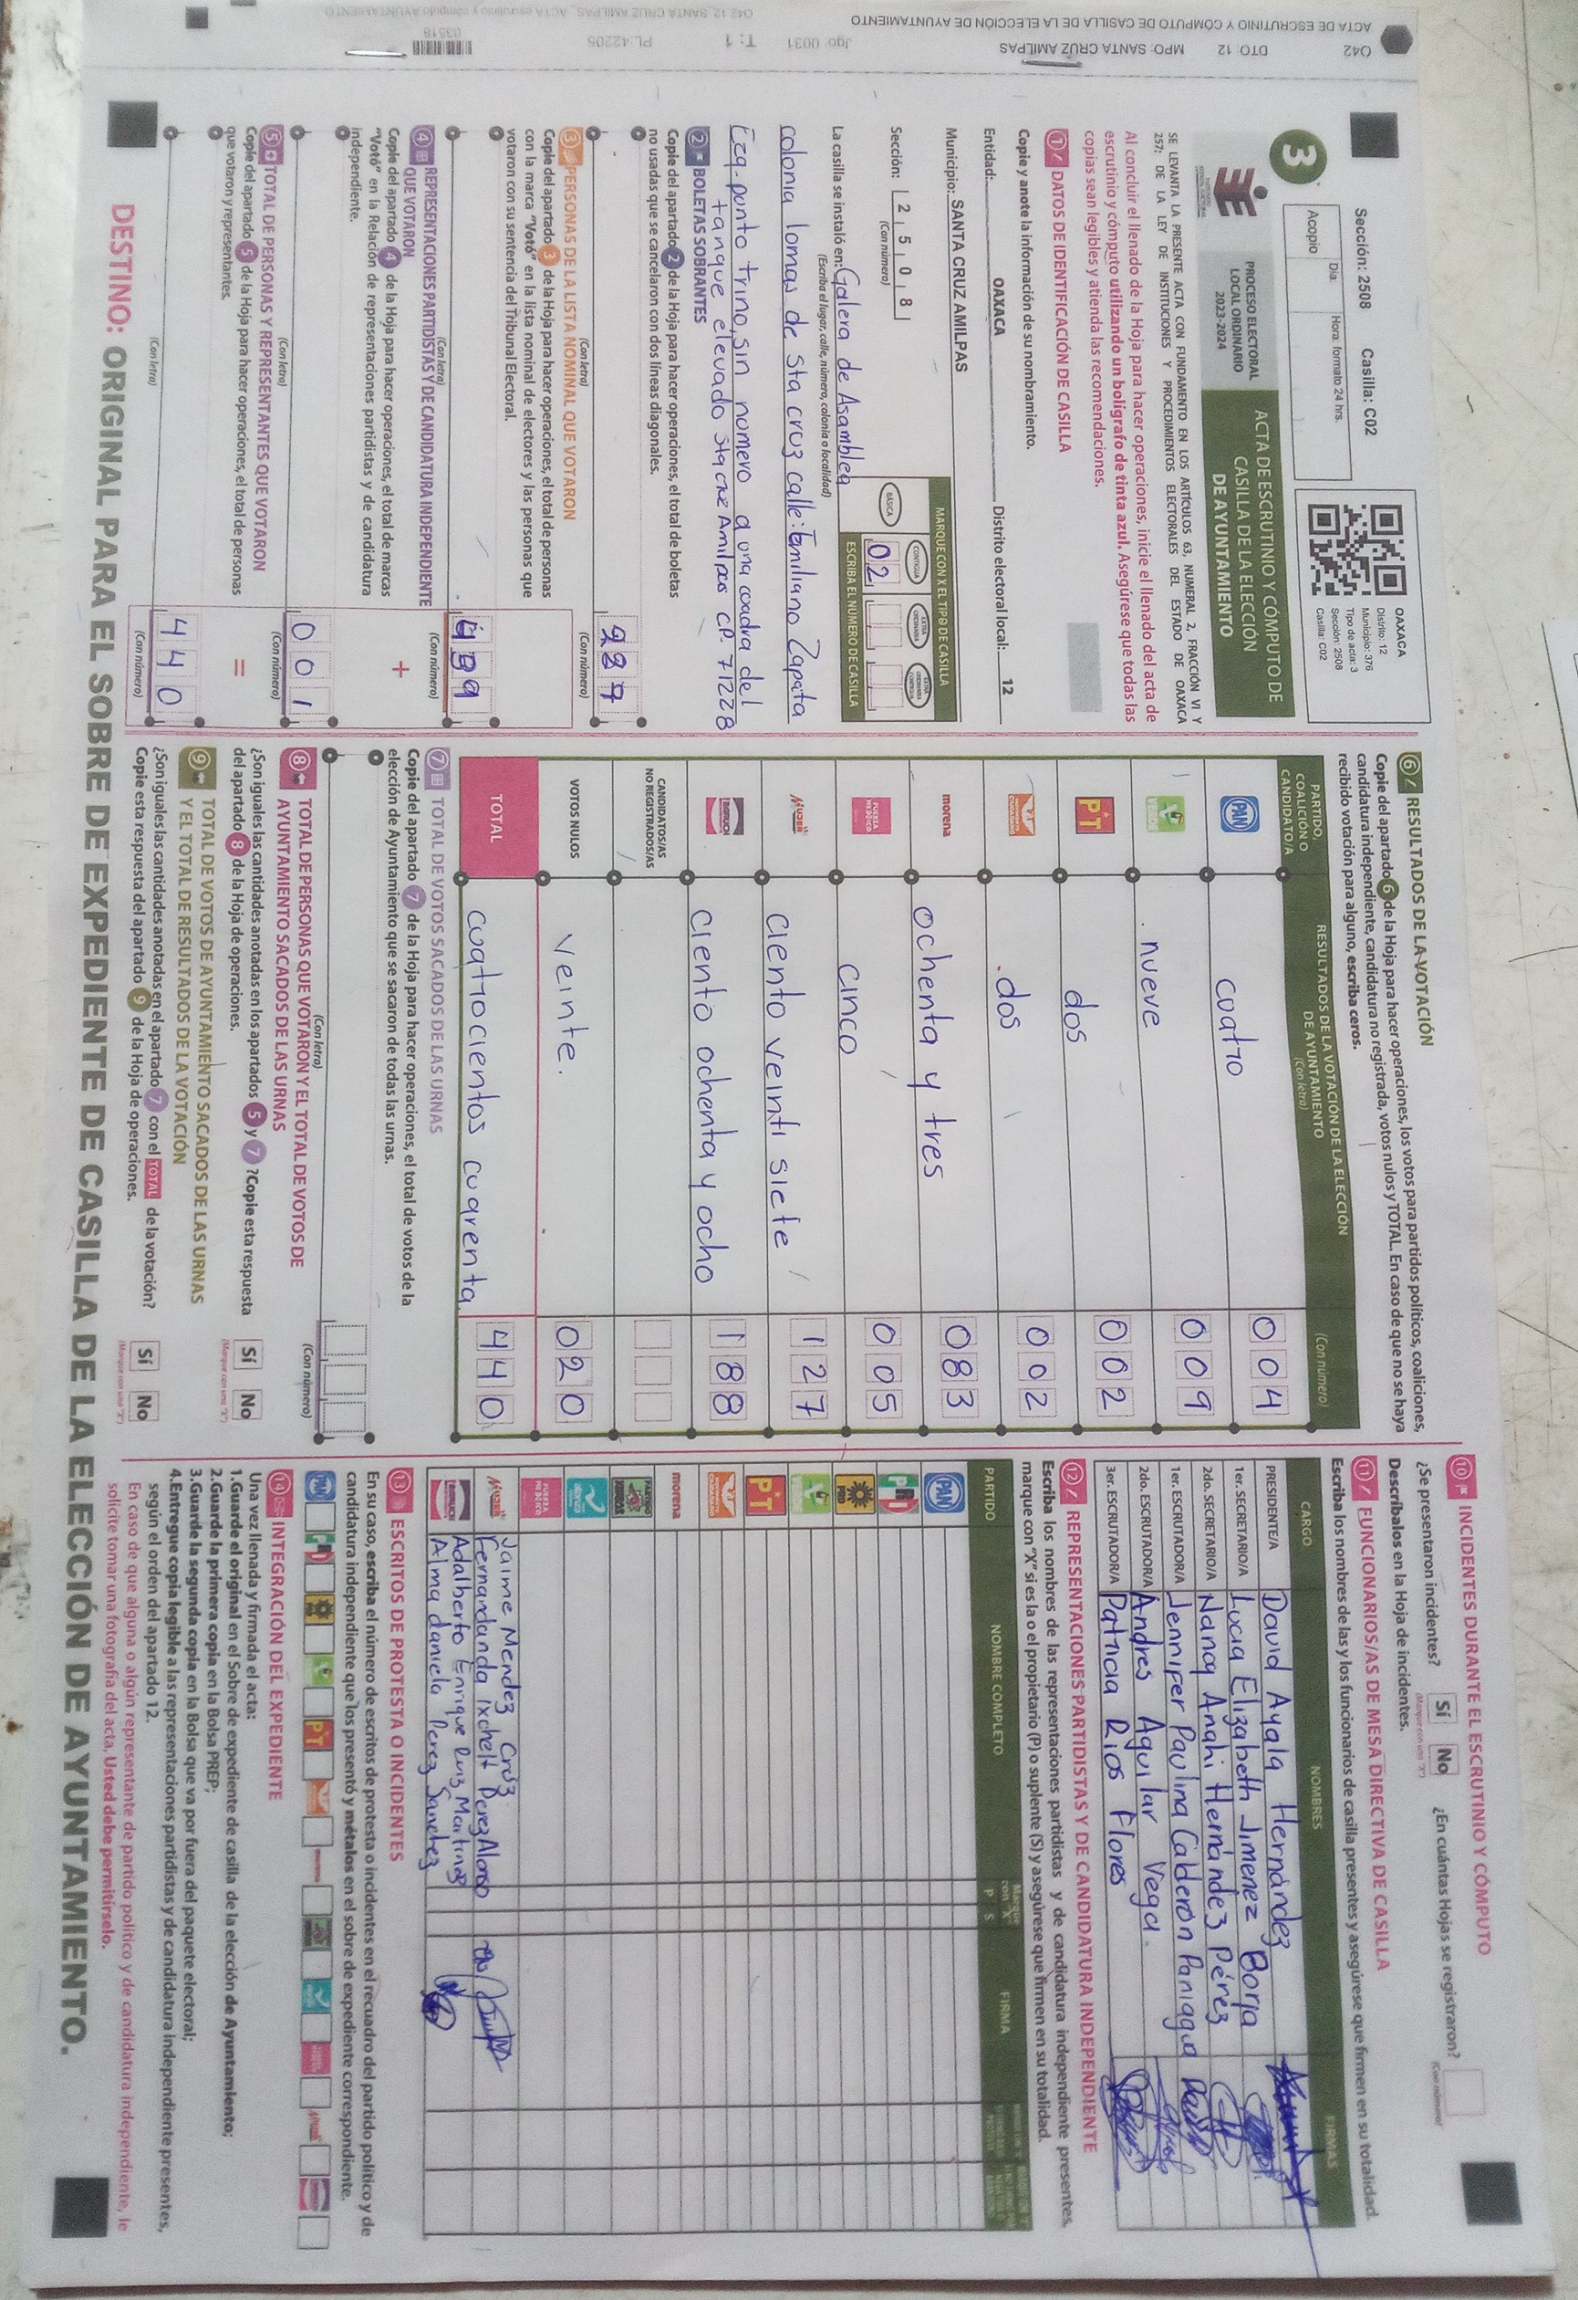 042 DTO: 12 MPO: SANTA CRUZ AMILPAS Jgo: 0031 T: 1 PL-42205
ACTA DE ESCRUTINIO Y CÓMPUTO DE CASILLA DE LA ELECCIÓN DE AYUNTAMIENTO
03518
Sección: 2508 Casilla: C02
Día: Hora: formato 24 hrs.
Acopio
OAXACA
Distrito: 12
Municipio: 376
Tipo de acta: 3
Sección: 2508
Casilla: C02
3
PROCESO ELECTORAL
LOCAL ORDINARIO
2023-2024
ACTA DE ESCRUTINIO Y CÓMPUTO DE
CASILLA DE LA ELECCIÓN
DE AYUNTAMIENTO
SE LEVANTA LA PRESENTE ACTA CON FUNDAMENTO EN LOS ARTÍCULOS 63, NUMERAL 2, FRACCIÓN VI Y
257; DE LA LEY DE INSTITUCIONES Y PROCEDIMIENTOS ELECTORALES DEL ESTADO DE OAXACA
Al concluir el llenado de la Hoja para hacer operaciones, inicie el llenado del acta de
escrutinio y cómputo utilizando un bolígrafo de tinta azul. Asegúrese que todas las
copias sean legibles y atienda las recomendaciones.
1 DATOS DE IDENTIFICACIÓN DE CASILLA
Copie y anote la información de su nombramiento.
Entidad: OAXACA Distrito electoral local: 12
Municipio: SANTA CRUZ AMILPAS
Sección: 2 5 0 8
(Con número)
MARQUE CON X EL TIPO DE CASILLA
BÁSICA CONTIGUA EXTRAORDINARIA EXTRAORDINARIA CONTIGUA
02
ESCRIBA EL NÚMERO DE CASILLA
La casilla se instaló en: Galera de Asamblea
(Escriba el lugar, calle, número, colonia o localidad)
colonia lomas de sta cruz calle: Emiliano Zapata
Ezq. ponto trino, sin nomero a una cuadra del
tanque elevado Sta cruz Amilpas CP. 71228
2 BOLETAS SOBRANTES
Copie del apartado 2 de la Hoja para hacer operaciones, el total de boletas
no usadas que se cancelaron con dos líneas diagonales.
287
(Con letra) (Con número)
3 PERSONAS DE LA LISTA NOMINAL QUE VOTARON
Copie del apartado 3 de la Hoja para hacer operaciones, el total de personas
con la marca "Votó" en la lista nominal de electores y las personas que
votaron con su sentencia del Tribunal Electoral.
439
(Con letra) (Con número)
4 REPRESENTACIONES PARTIDISTAS Y DE CANDIDATURA INDEPENDIENTE
QUE VOTARON
Copie del apartado 4 de la Hoja para hacer operaciones, el total de marcas
"Votó" en la Relación de representaciones partidistas y de candidatura
independiente.
+
001
(Con letra) (Con número)
5 TOTAL DE PERSONAS Y REPRESENTANTES QUE VOTARON
Copie del apartado 5 de la Hoja para hacer operaciones, el total de personas
que votaron y representantes.
=
440
(Con letra) (Con número)
6 RESULTADOS DE LA VOTACIÓN
Copie del apartado 6 de la Hoja para hacer operaciones, los votos para partidos políticos, coaliciones,
candidatura independiente, candidatura no registrada, votos nulos y TOTAL. En caso de que no se haya
recibido votación para alguno, escriba ceros.
PARTIDO, COALICIÓN O CANDIDATO/A
RESULTADOS DE LA VOTACIÓN DE LA ELECCIÓN DE AYUNTAMIENTO
(Con letra) (Con número)
PAN cuatro 004
VERDE nueve 009
PT dos 002
dos 002
morena ochenta y tres 083
FUERZA MÉXICO cinco 005
MUJER ciento veinti siete 127
ciento ochenta y ocho 188
CANDIDATOS/AS NO REGISTRADOS/AS
VOTOS NULOS veinte. 020
TOTAL cuatrocientos cuarenta 440
7 TOTAL DE VOTOS SACADOS DE LAS URNAS
Copie del apartado 7 de la Hoja para hacer operaciones, el total de votos de la
elección de Ayuntamiento que se sacaron de todas las urnas.
(Con letra) (Con número)
8 TOTAL DE PERSONAS QUE VOTARON Y EL TOTAL DE VOTOS DE
AYUNTAMIENTO SACADOS DE LAS URNAS
¿Son iguales las cantidades anotadas en los apartados 5 y 7 ? Copie esta respuesta
del apartado 8 de la Hoja de operaciones.
Sí No
(Marque con una "X")
9 TOTAL DE VOTOS DE AYUNTAMIENTO SACADOS DE LAS URNAS
Y EL TOTAL DE RESULTADOS DE LA VOTACIÓN
¿Son iguales las cantidades anotadas en el apartado 7 con el TOTAL de la votación?
Copie esta respuesta del apartado 9 de la Hoja de operaciones.
Sí No
(Marque con una "X")
10 INCIDENTES DURANTE EL ESCRUTINIO Y CÓMPUTO
¿Se presentaron incidentes? Sí No ¿En cuántas Hojas se registraron?
(Marque con una "X") (Con número)
Descríbalos en la Hoja de incidentes.
11 FUNCIONARIOS/AS DE MESA DIRECTIVA DE CASILLA
Escriba los nombres de las y los funcionarios de casilla presentes y asegúrese que firmen en su totalidad.
CARGO NOMBRES FIRMAS
PRESIDENTE/A David Ayala Hernández
1er. SECRETARIO/A Lucia Elizabeth Jimenez Borja
2do. SECRETARIO/A Nancy Anahi Hernández Pérez
1er. ESCRUTADOR/A Jennifer Paulina Calderón Paniagua
2do. ESCRUTADOR/A Andres Aguilar Vega.
3er. ESCRUTADOR/A Patricia Rios Flores
12 REPRESENTACIONES PARTIDISTAS Y DE CANDIDATURA INDEPENDIENTE
Escriba los nombres de las representaciones partidistas y de candidatura independiente presentes,
marque con "X" si es la o el propietario (P) o suplente (S) y asegúrese que firmen en su totalidad.
PARTIDO NOMBRE COMPLETO Marque con "X" P S FIRMA
PAN
PRI
PRD
PT
morena
MUJER Jaime Mendez Cruz
Fernandanda Ixchelt Perez Alonso
Adalberto Enrique Ruiz Martinez
Alma daniela Perez Sanchez
13 ESCRITOS DE PROTESTA O INCIDENTES
En su caso, escriba el número de escritos de protesta o incidentes en el recuadro del partido político y de
candidatura independiente que los presentó y métalos en el sobre de expediente correspondiente.
14 INTEGRACIÓN DEL EXPEDIENTE
Una vez llenada y firmada el acta:
1.Guarde el original en el Sobre de expediente de casilla de la elección de Ayuntamiento;
2.Guarde la primera copia en la Bolsa PREP;
3.Guarde la segunda copia en la Bolsa que va por fuera del paquete electoral;
4.Entregue copia legible a las representaciones partidistas y de candidatura independiente presentes,
según el orden del apartado 12.
En caso de que alguna o algún representante de partido político y de candidatura independiente, le
solicite tomar una fotografía del acta, Usted debe permitírselo.
DESTINO: ORIGINAL PARA EL SOBRE DE EXPEDIENTE DE CASILLA DE LA ELECCIÓN DE AYUNTAMIENTO.